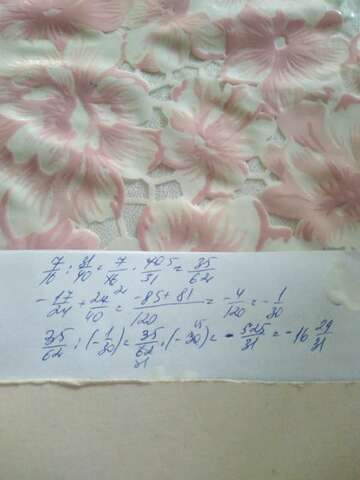 7/10 : 31/40 = 7/16 · 40 5/31 = 35/62
- 17/24 + 27/40 = -85+81/120 = -4/120 = -1/30
35/62 : (-1/30) = 35/62 31 · (-30 15) = -525/31 = -16 29/31